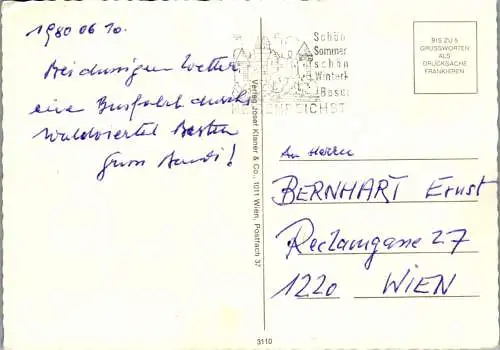 1980 06 10.
Bei dunstigem Wetter
eine Busfahrt durchs
Waldviertel Besten
Gruss
Schön
Sommer
schön
Winterf
Besuc
REICHST
BIS ZU 5
GRUSSWORTEN
ALS
DRUCKSACHE
FRANKIEREN
Verlag Josef Klaner & Co., 1011 Wien, Postfach 37
An Herrn
BERNHART Ernst
Reclamgasse 27
1220 WIEN
3110